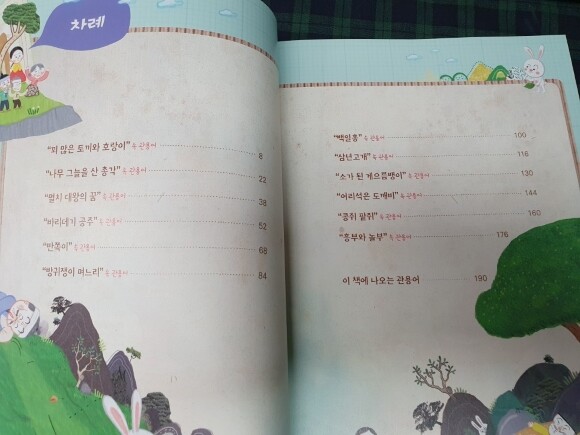 차례
"꾀 많은 토끼와 호랑이" 속 관용어 8
"나무 그늘을 산 총각" 속 관용어 22
"멸치 대왕의 꿈" 속 관용어 38
"바리데기 공주" 속 관용어 52
"반쪽이" 속 관용어 68
"방귀쟁이 며느리" 속 관용어 84
"백일홍" 속 관용어 100
"삼년고개" 속 관용어 116
"소가 된 게으름뱅이" 속 관용어 130
"어리석은 도깨비" 속 관용어 144
"콩쥐 팥쥐" 속 관용어 160
"흥부와 놀부" 속 관용어 176
이 책에 나오는 관용어 190